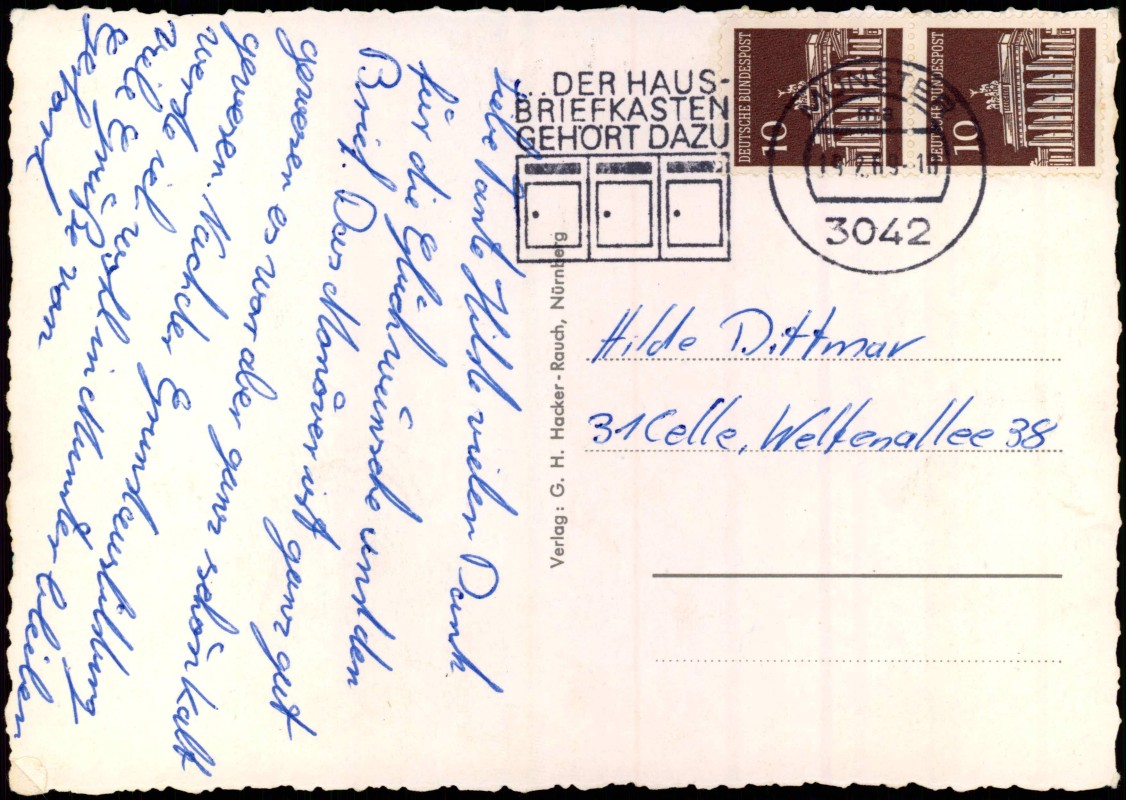 ...DER HAUS-
BRIEFKASTEN
GEHÖRT DAZU
DEUTSCHE BUNDESPOST
10
DEUTSCHE BUNDESPOST
10
MUNSTER
3042
Liebe Tante Hilde vielen Dank
für die Glückwünsche und den
Brief. Das Manöver ist ganz gut
gewesen es war aber ganz schön kalt
gewesen. Nach der Grundausbildung
werde ich wohl in Munster bleiben
viele Grüße von
Verlag: G. H. Hacker-Rauch, Nürnberg
Hilde Dittmar
31 Celle, Welfenallee 38